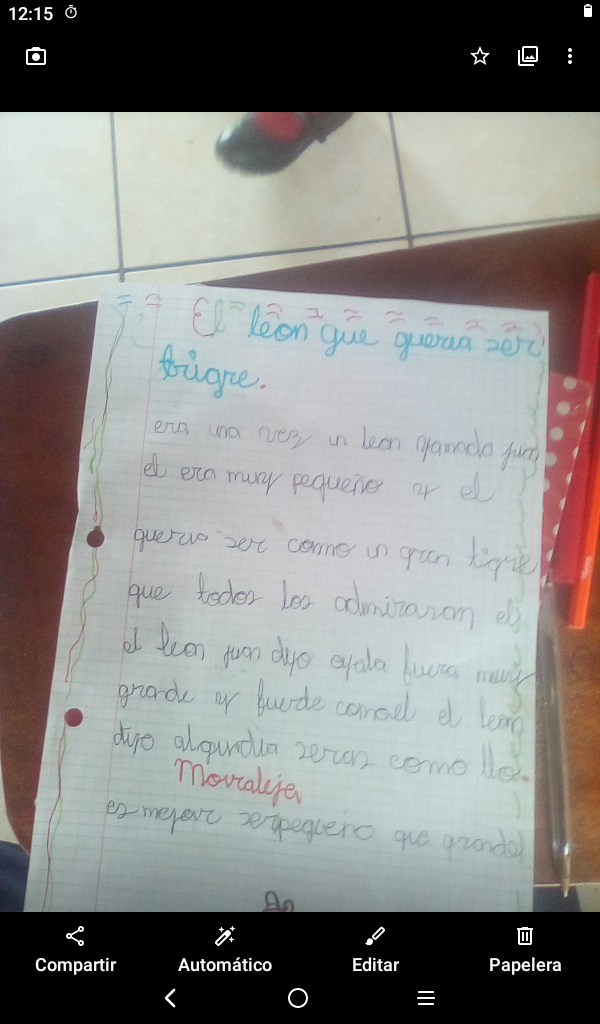 12:15
El leon que queria ser
trigre.
era una vez un leon yamado juan
el era muy pequeño y el
queria ser como un gran tigre
que todos los admiraran el
el leon juan dijo ojala fuera muy
grande y fuerde comoel el leon
dijo algundia seras como llo.
Movraleja
es mejor serpequeño que grande
Compartir
Automático
Editar
Papelera